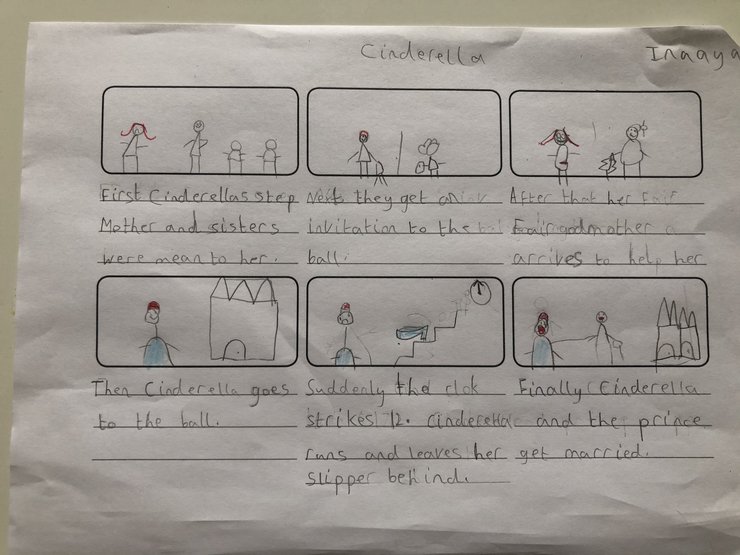 Cinderella
Inaaya
First Cinderellas step
Mother and sisters
were mean to her.
Next they get an
invitation to the
ball.
After that her Fair
Fairgodmother a
arrives to help her
Then Cinderella goes
to the ball.
Suddenly the clok
strikes 12. cinderella
runs and leaves her
slipper behind.
Finally Cinderella
and the prince
get married.